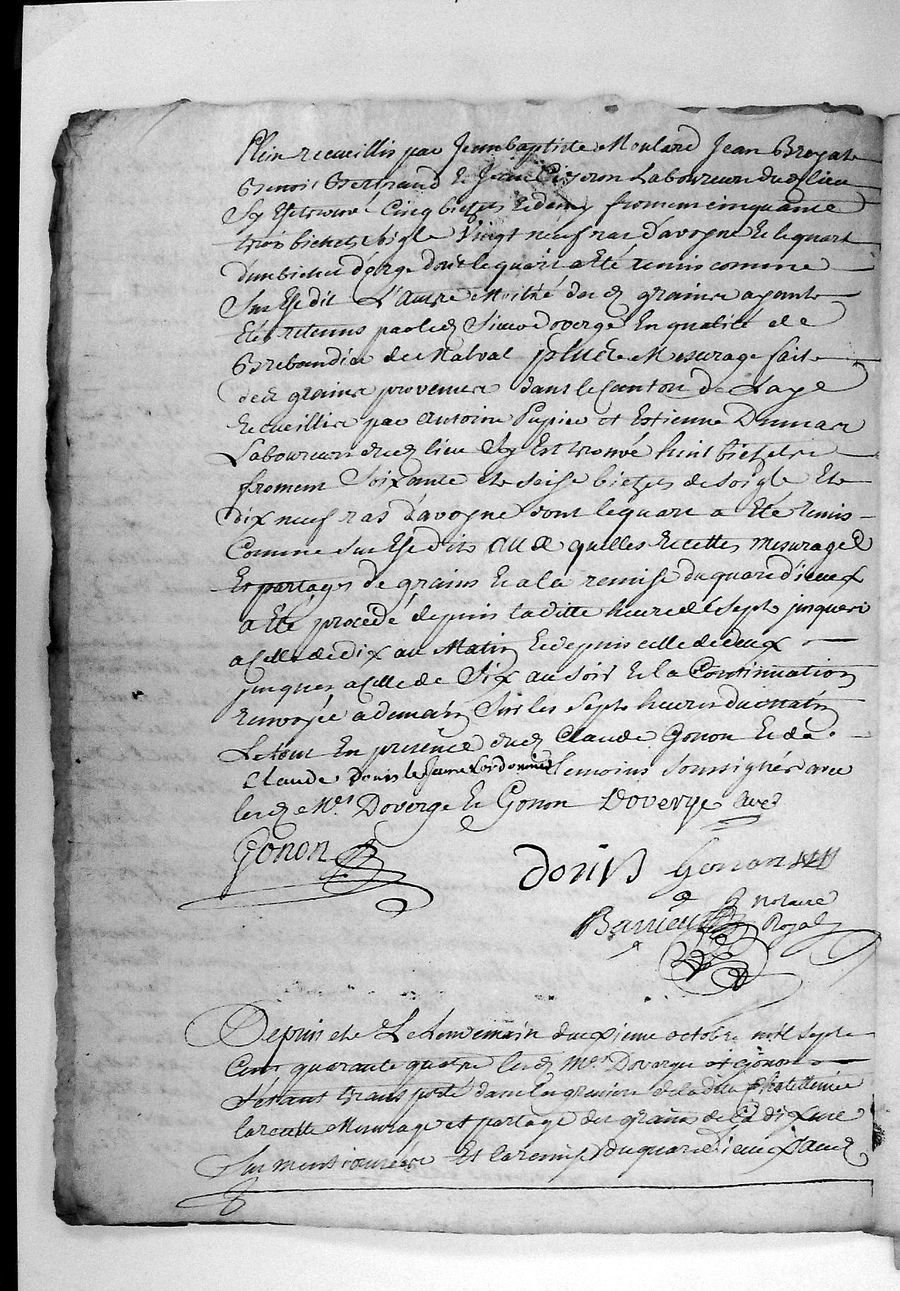 plein recueillis par Jeanbaptiste Moulard Jean Broyat
Benoist Bertrand & Jean Laboureurs dud lieu
Sy Est trouvé Cinq bichets & demy froment cinquante
trois bichets Seigle Vingt neuf ras davogne & le quart
dun bichet dorge dont le quart a Eté remis comme
Sus Est dit L'autre Moitié desd grains ayant
Eté retenus par led Sieur Doverge En qualité de
Prebandier de Malval plus le Mesurage fait
desd grains provenus dans le Canton de Laye
Recueillis par Antoine Papier et Estienne Dumas
Laboureurs dud lieu Sy Est trouvé huit bichets
froment Soixante & seise bichets de Seigle &
dix neuf ras d'avogne dont le quart a Eté remis
Comme sus Est dit auxquelles Recettes mesurages
Et partages de grains & a la remise du quart d'iceux
a Eté procédé depuis laditte heure de Sept jusques
a Celle de dix au Matin & depuis celle de deux
jusques a Celle de Six au soir & la Continuation
renvoyée a demain Sur les Sept heures du matin
Le tout En presence dud Claude Gonon & de
Claude Doris le jeune Cordonnier temoins Soussignés avec
lesd Mes Doverge & Gonon Doverge
Gonon
Doris Gonon
notaire
Royal
Depuis & Le Lendemain deuxieme octobre mil Sept
Cent quarante quatre lesd Mes Doverge et Gonon
S'étant transporté dans les greniers de la ditte Chatellenie
la recette Mesurage et partage des grains de la dixme
Sus mentionnée Et la remise du quart d'iceux aud